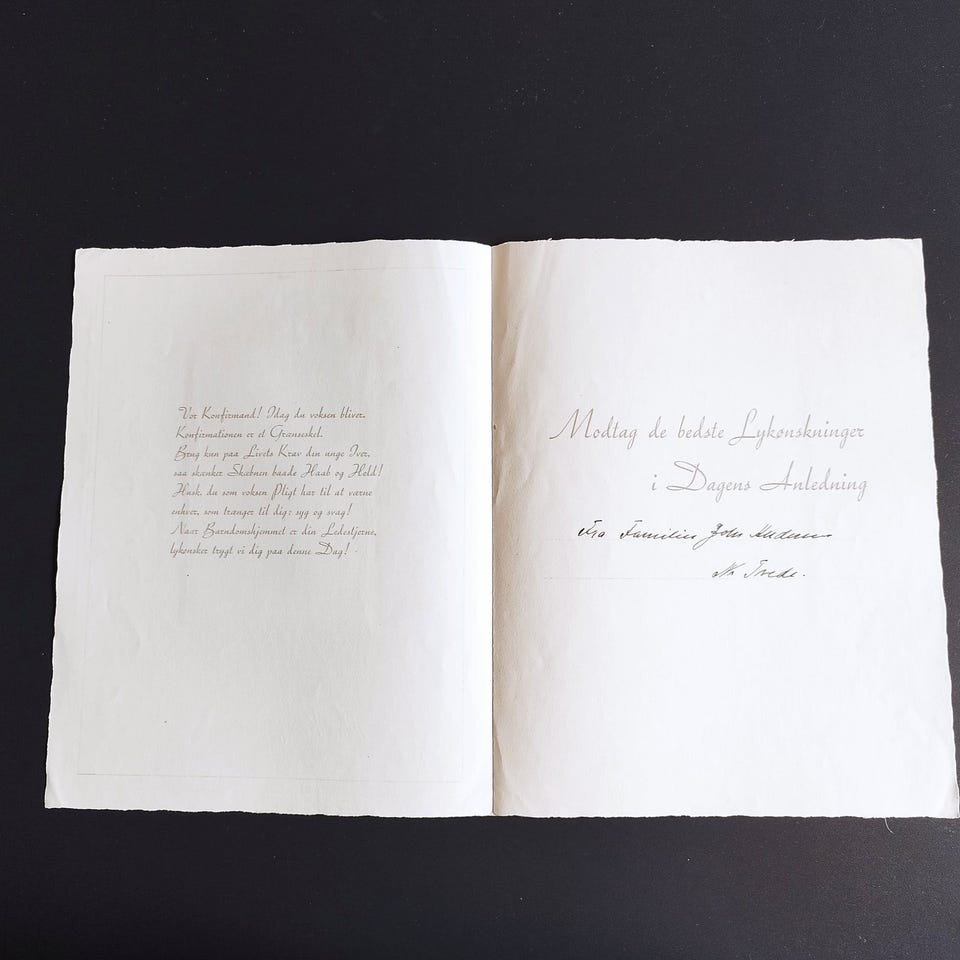 Vor Konfirmand! Idag du voksen bliver.
Konfirmationen er et Grænseskel.
Brug kun paa Livets Krav din unge Iver,
saa skænker Skæbnen baade Haab og Held!
Husk, du som voksen Pligt har til at værne
enhver, som trænger til dig: syg og svag!
Naar Barndomshjemmet er din Ledestjerne,
lykønsker trygt vi dig paa denne Dag!
Modtag de bedste Lykønskninger
i Dagens Anledning
Fra Familien John Andersen
Tvede.